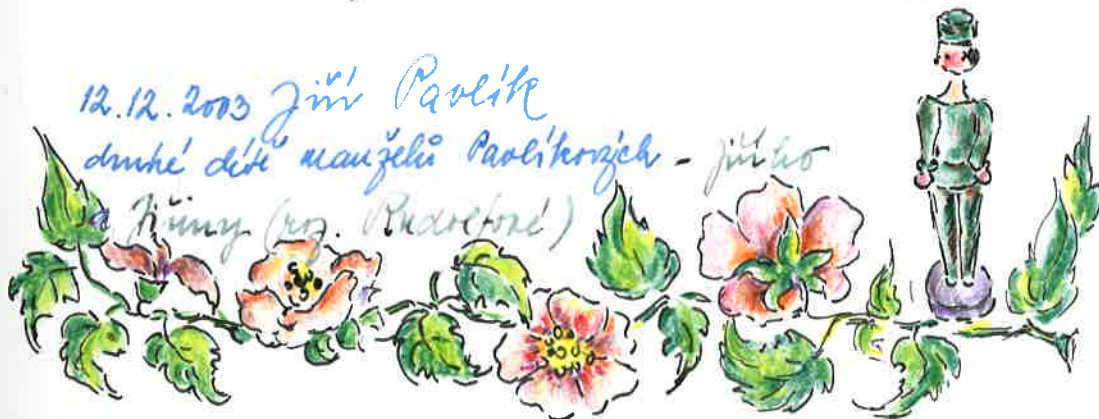 12.12.2003 Jiří Pavlík
druhé dítě manželů Pavlíkových - Jiřího
a Jiřiny (roz. Rudolfové)